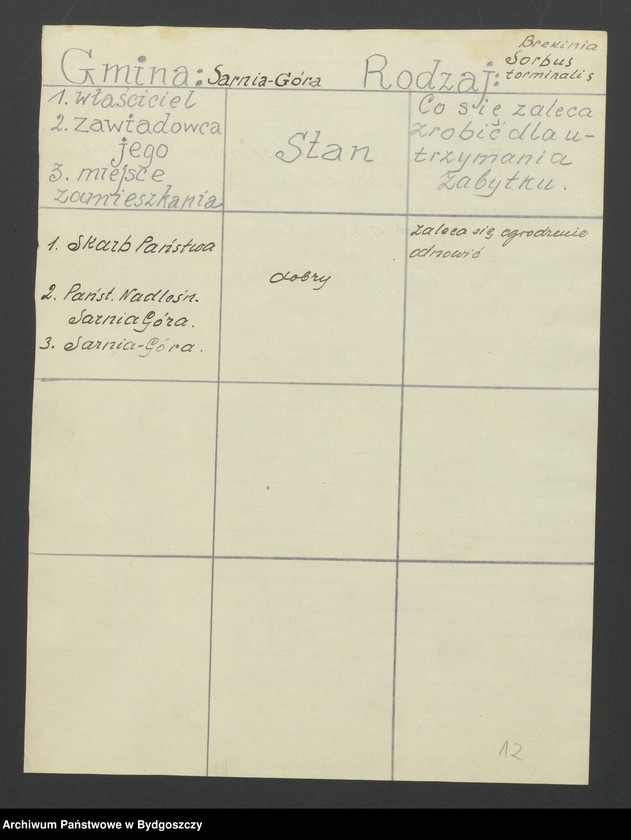 Gmina: Sarnia-Góra Rodzaj: Brekinia
Sorbus
torminalis
1. właściciel
2. zawiadowca
jego
3. miejsce
zamieszkania
Stan
Co się zaleca
zrobić dla u-
trzymania
zabytku.
1. Skarb Państwa
2. Państ. Nadleśn.
Sarnia Góra.
3. Sarnia-Góra.
dobry
zaleca się ogrodzenie
odnowić
12
Archiwum Państwowe w Bydgoszczy